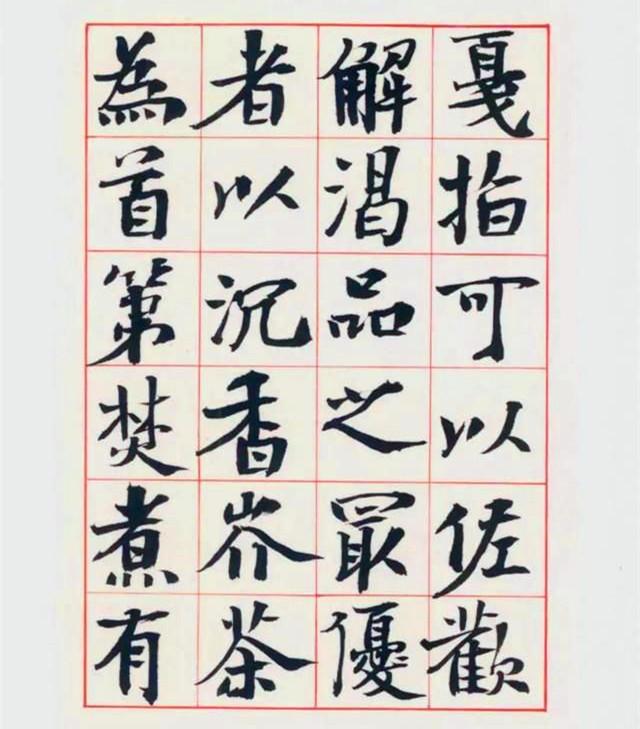 戛指可以佐歡
解渴品之最優
者以沉香岕茶
為首第焚煮有